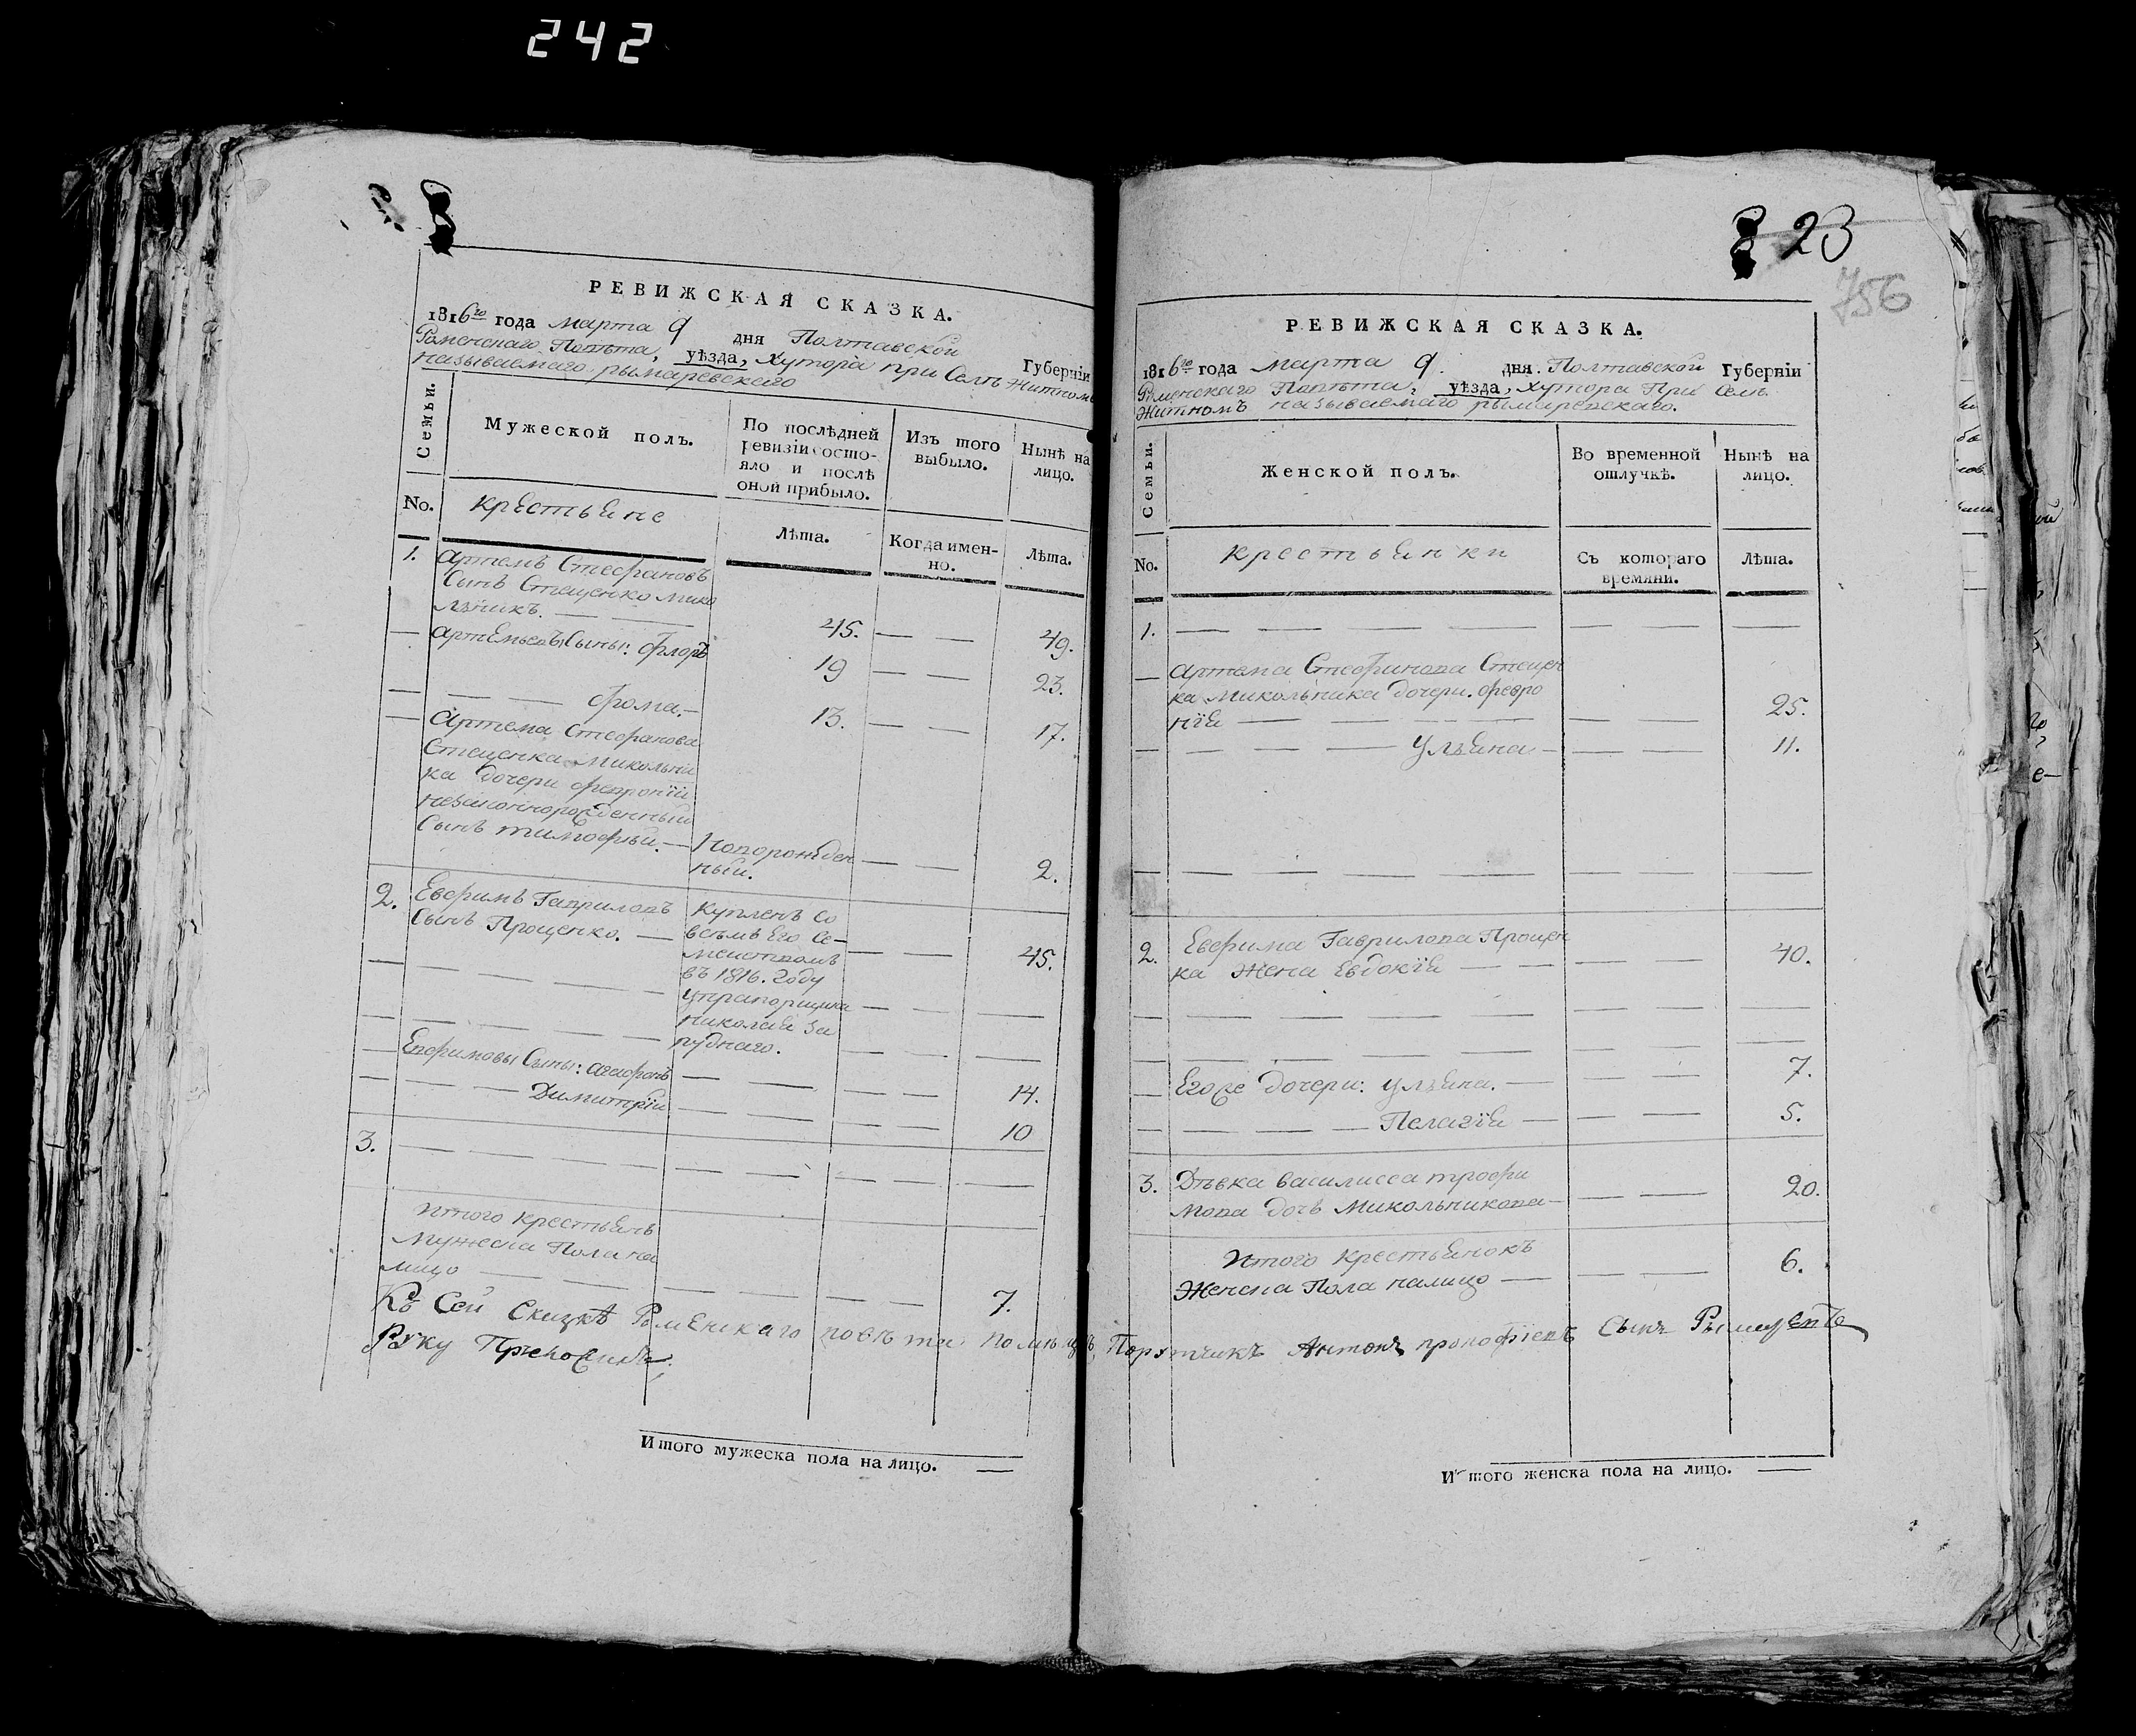 242
8
РЕВИЖСКАЯ СКАЗКА.
1816го года марта 9 дня Полтавской Губерніи
Роменскаго Повѣта, уѣзда, хутора при Селѣ Житномъ
называемаго рымаревскаго
Семьи.
Мужеской полъ.
По послѣдней
ревизіи состо-
яло и послѣ
оной прибыло.
Изъ того
выбыло.
Нынѣ на
лицо.
No.
крестьяне
Лѣта.
Когда имен-
но.
Лѣта.
1. Артемъ Стефановъ
Сынъ Стеценко Мико
льникъ. 45. 49.
Артемьевы Сыны: Флоръ 19 23.
Фома. 13. 17.
Артема Стефанова
Стеценка Микольни
ка дочери Февроніи
незаконнорожденный
Сынъ тимофѣй. Новорожден
ный. 2.
2. Евфимъ Гавриловъ
Сынъ Проценко. 45.
Купленъ со
всѣмъ Его Се-
мействомъ
въ 1816. году
упрапорщика
николая За
руднаго.
Евфимовы Сыны: агафонъ 14.
Димитрій 10
3.
Итого крестьянъ
Мужеска Пола на
лицо 7.
Къ Сей Сказкѣ Роменскаго повѣта Помѣщикъ Порутчикъ Антонъ прокофіевъ Сынъ Рымаревъ
Руку Приложилъ
Итого мужеска пола на лицо.
8 23
756
РЕВИЖСКАЯ СКАЗКА.
1816го года марта 9. дня Полтавской Губерніи
Роменскаго Повѣта, уѣзда, хутора При Селѣ
Житномъ называемаго рымаревскаго.
Семьи.
Женской полъ.
Во временной
отлучкѣ.
Нынѣ на
лицо.
No.
крестьянки
Съ котораго
времяни.
Лѣта.
1.
Артема Стефанова Стецен
ка Микольника дочери. Февро
нія 25.
Ульяна 11.
2. Евфима Гаврилова Процен
ка жена Евдокія 40.
Егоже дочери: ульяна. 7.
Пелагія 5.
3. Дѣвка василисса трофи
мова дочь Микольникова 20.
Итого крестьянокъ
Женска Пола налицо 6.
Итого женска пола на лицо.